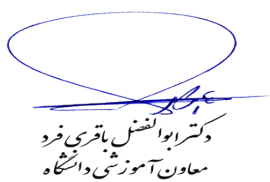 دکتر ابوالفضل باقری فرد
معاون آموزشی دانشگاه